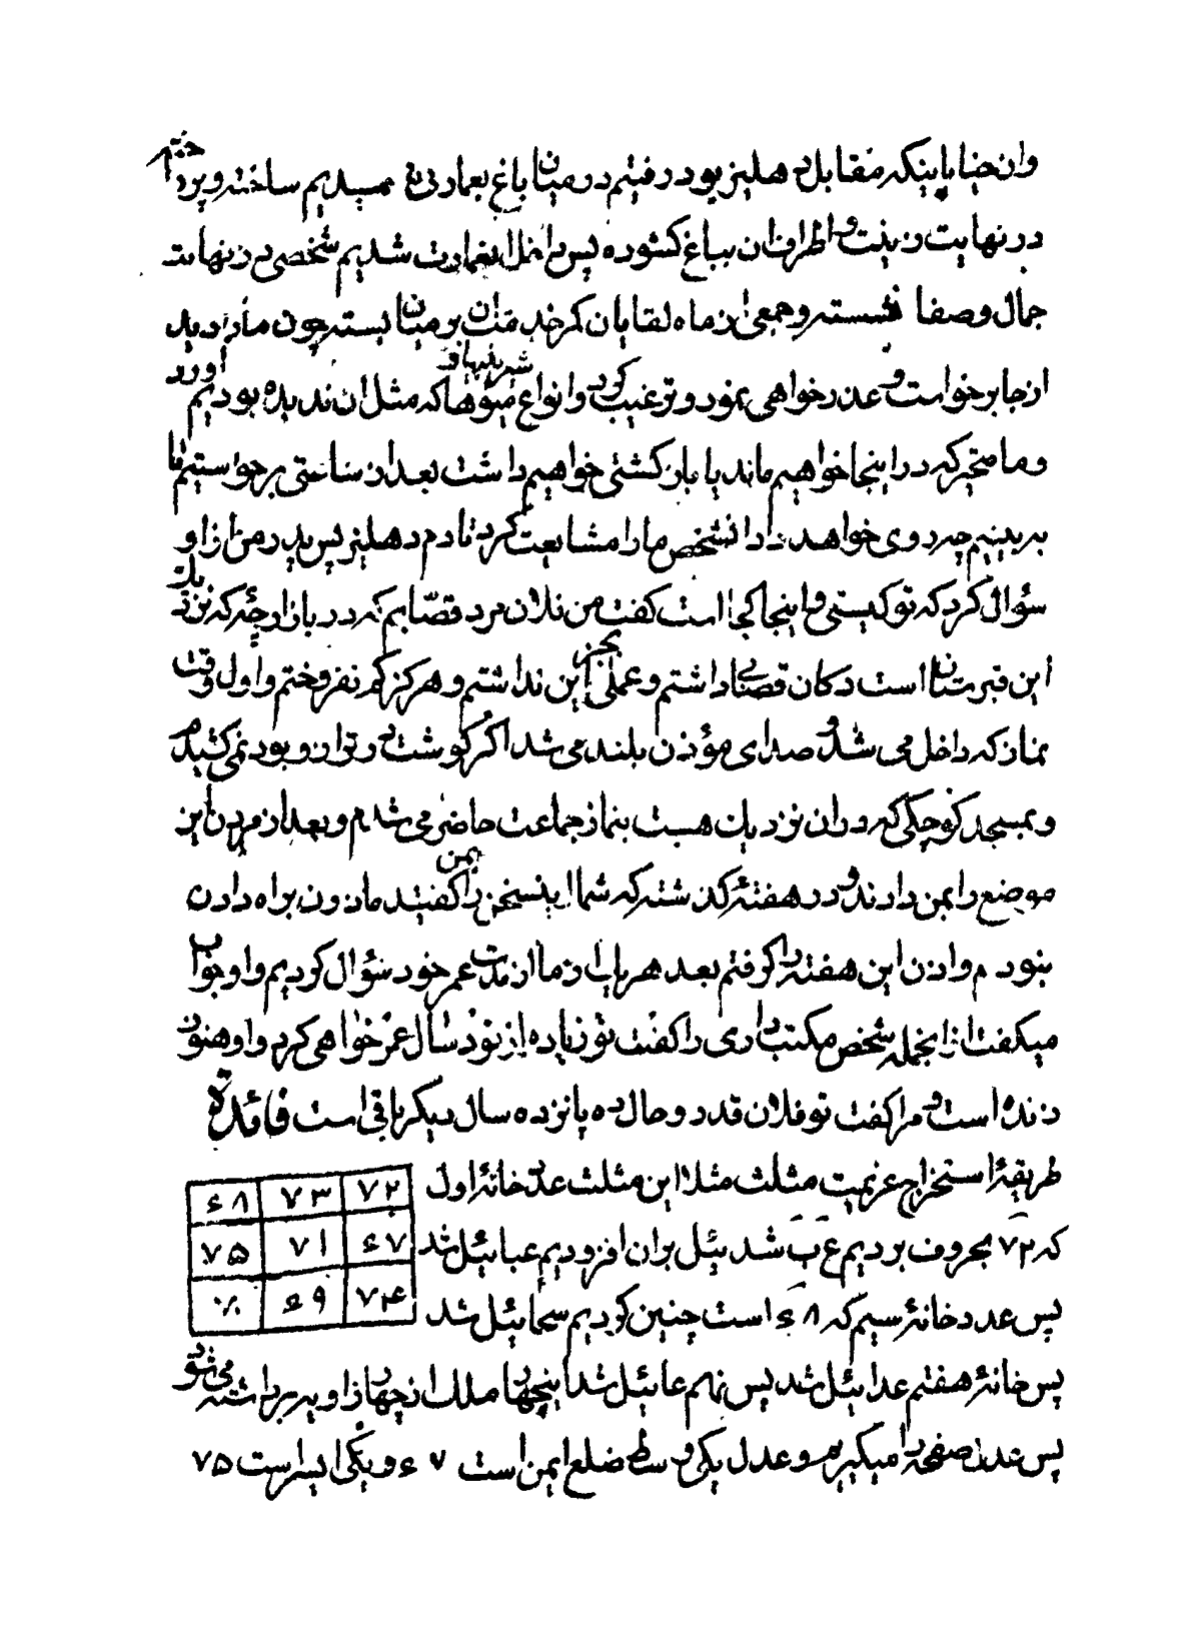 وان خیابانیکه مقابل دهلیز بود رفتیم در میان باغ بعمارتی رسیدیم ساخته و پرداخته
در نهایت زینت و اطراف ان بباغ کشوده پس داخل انعمارت شدیم شخصی در نهایت
جمال و صفا نشسته و جمعی از ماه لقایان کمر خدمتان بر میان بسته چون ما را دید
از جا برخواست و عذر خواهی نمود و ترغیب کرد و انواع میوها که مثل ان ندیده بودیم اورد
و ما متحیر که در اینجا خواهیم ماند یا باز کشتی خواهیم داشت بعد از ساعتی برخواستیم تا
به بینیم چه روی خواهد داد انشخص ما را مشایعت کرد تا دم دهلیز پس پدر من از او
سؤال کرد که تو کیستی و اینجا کجا است کفت من فلان مرد قصابم که در بازارچه که نزدیک
این قبرستان است دکان قصابی داشتم و عملی بجز این نداشتم و هرکز کم نفروختم و اول وقت
نماز که داخل می شد و صدای مؤذن بلند می شد اکر کوشت در ترازو بود نمی کشیدم
و بمسجد کوچکی که در ان نزدیک هست بنماز جماعت حاضر می شدم و بعد از مردن این
موضع را بمن دادند و در هفته کذشته که شما این سخن را بمن کفتید ماذون براه دادن
نبودم و اذن این هفته را کرفتم بعد هر یک از ما از مدت عمر خود سؤال کردیم و او جواب
میکفت از انجمله شخص مکتب داری را کفت تو زیاده از نود سال عمر خواهی کرد و او هنوز
زنده است و مرا کفت تو فلان قدر و حال ده پانزده سال دیکر باقی است فائدة
طریقهٔ استخراج عزیمت مثلث مثلا این مثلث عدد خانهٔ اول
که ۷۲ بحروف بردیم عب شد ئیل بران افزودیم عبائیل شد
پس عدد خانهٔ سیم که ۶۸ است چنین کردیم سحائیل شد
۷۲ ۷۳ ۶۸
۶۷ ۷۱ ۷۵
۷۴ ۶۹ ۷۰
پس خانهٔ هفتم عدائیل شد پس نهم عائیل شد اینچهار ملک از چهار زاویه برداشته می شود
پس عدد صفحه را میکیریم و عدل یکی و سطی ضلع ایمن است ۶۷ و یکی ایسر است ۷۵